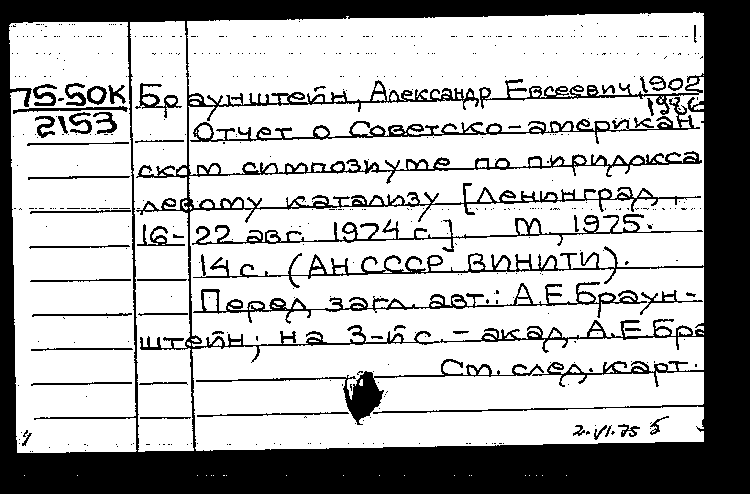 75-50к Браунштейн, Александр Евсеевич, 1902
2153 1986
Отчет о Советско-американ-
ском симпозиуме по пиридокса
левому катализу [Ленинград,
16-22 авг. 1974 г.]. М., 1975.
14 с. (АН СССР. ВИНИТИ).
Перед загл. авт.: А.Е.Браун-
штейн; на 3-й с. - акад. А.Е.Бра
См. след. карт.
2.VI.75 б